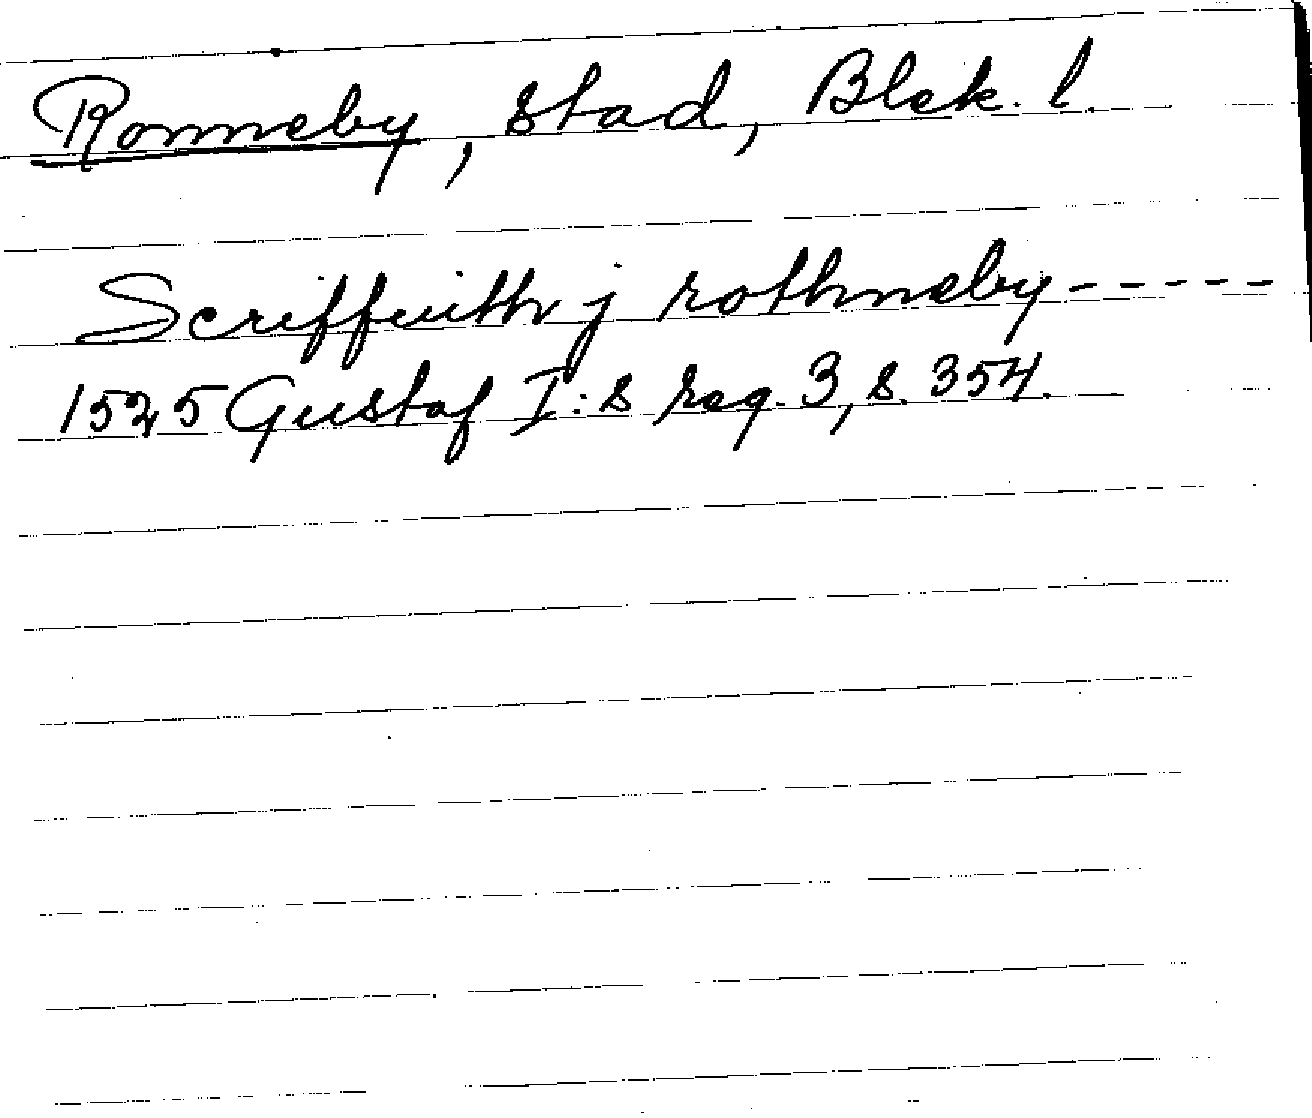 Ronneby, stad, Blek. l.
Scriffuith j rothneby-----
1525 Gustaf I:s reg. 3, s. 354.